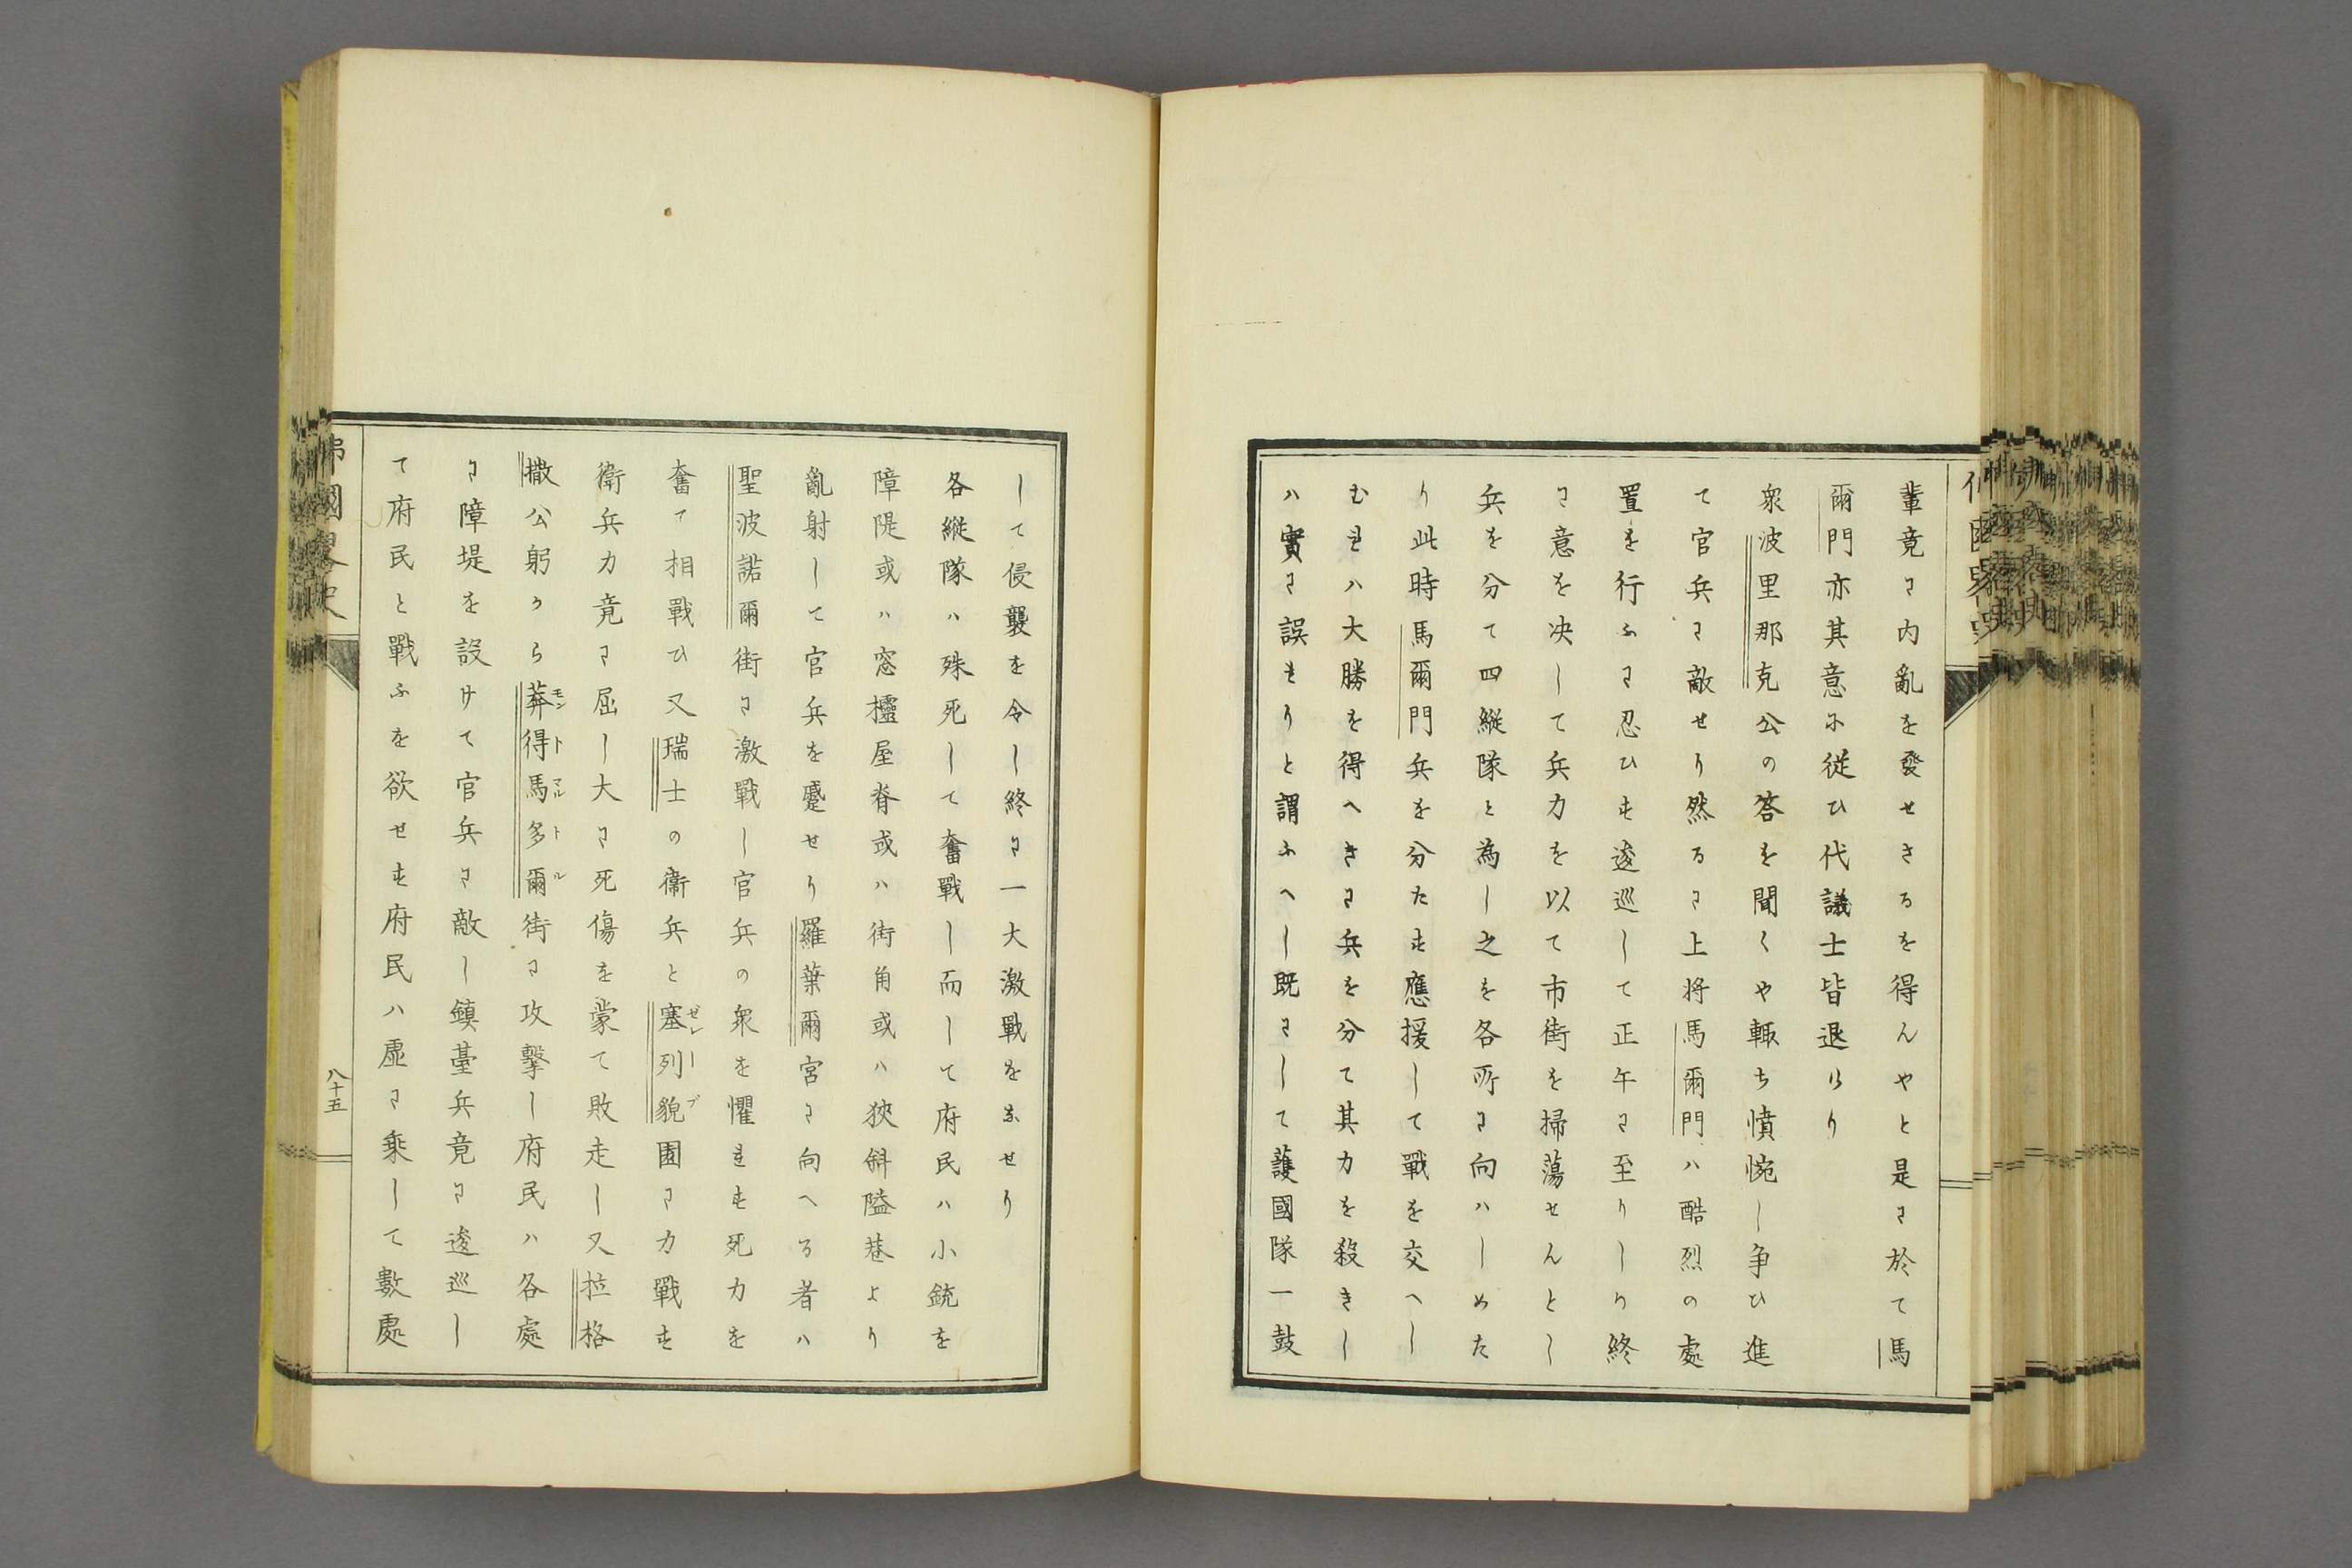 輩竟に内亂を發せさるを得んやと是に於て馬
爾門亦其意に従ひ代議士皆退けり
衆波里那克公の答を聞くや輙ち憤惋し争ひ進
て官兵に敵せり然るに上将馬爾門ハ酷烈の處
置を行ふに忍ひす逡巡して正午に至りしり終
に意を决して兵力を以て市街を掃蕩せんとし
兵を分て四縦隊と為し之を各所に向ハしめた
り此時馬爾門兵を分たす應援して戰を交へし
むれハ大勝を得へきに兵を分て其力を殺きし
ハ實に誤れりと謂ふへし既にして護國隊一鼓
して侵襲を令し終に一大激戰をなせり
各縦隊ハ殊死して奮戰し而して府民ハ小銃を
障隄或ハ窓櫺屋脊或ハ街角或ハ狹斜隘巷より
亂射して官兵を蹙せり羅葉爾宮に向へる者ハ
聖波諾爾街に激戰し官兵の衆を懼れす死力を
奮て相戰ひ又瑞士の衞兵と塞列貌園に力戰す
衛兵力竟に屈し大に死傷を蒙て敗走し又拉格
撒公躬から莽得馬多爾街に攻擊し府民ハ各處
に障堤を設けて官兵に敵し鎮臺兵竟に逡巡し
て府民と戰ふを欲せす府民ハ虚に乘して數處
佛國畧史
八十五